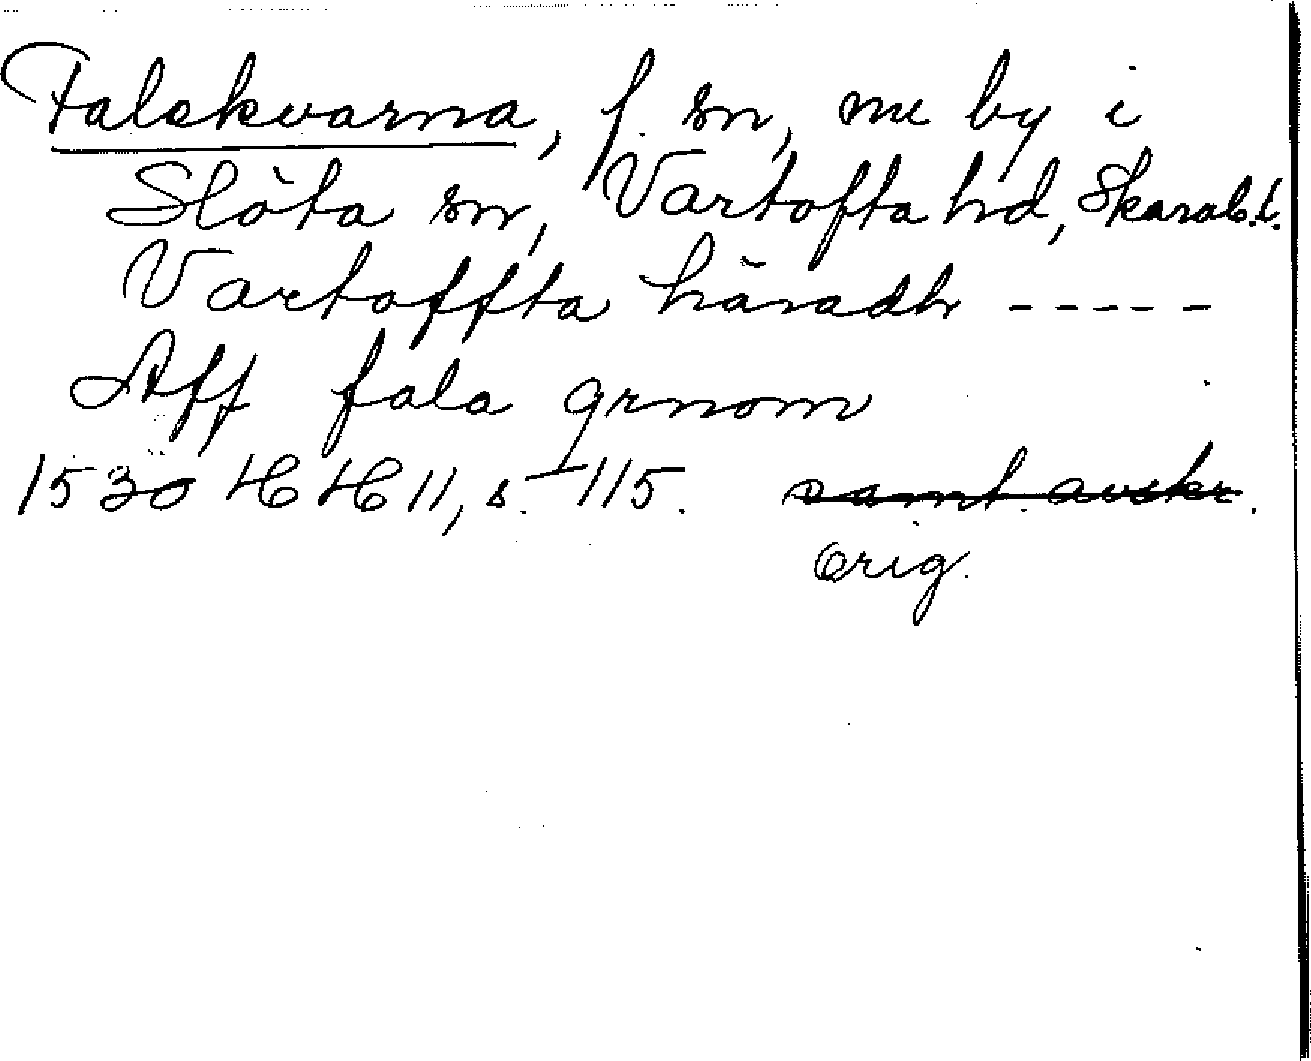 Falekvarna, f. sn, nu by i
Slöta sn, Vartofta hd, Skarab.l.
Vartoffta häradh -----
Aff fala qrnom
1530 HH 11, s. 115. samt. avskr.
Orig.